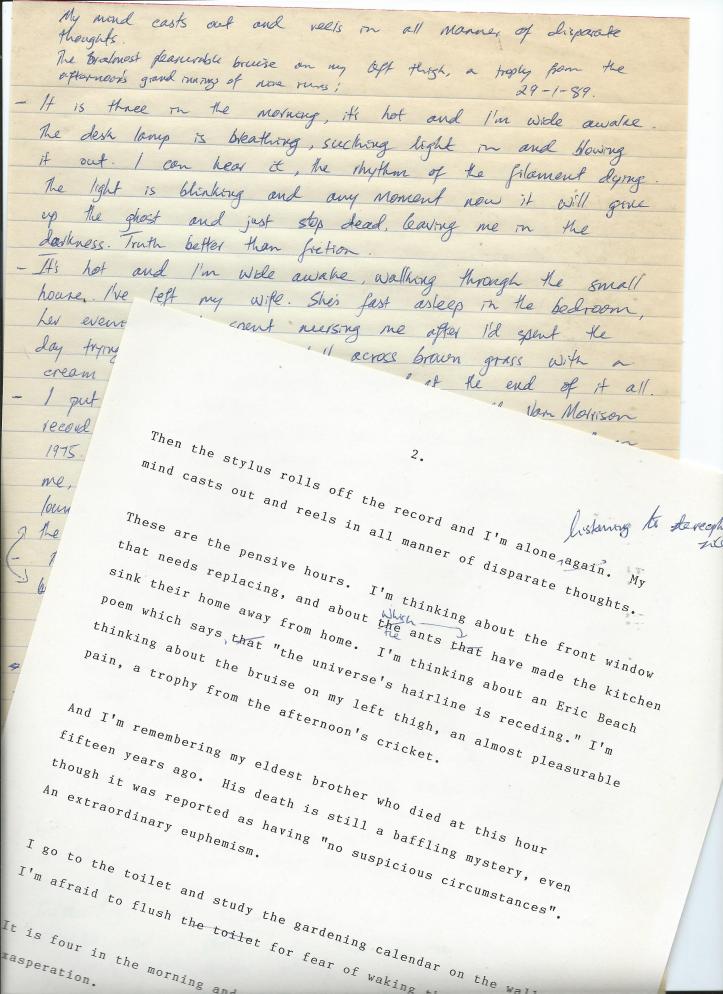 My mind casts out and reels in all manner of disparate
thoughts.
The almost pleasurable bruise on my left thigh, a trophy from the
afternoon's grand innings of nine runs;
29-1-89.
- It is three in the morning, it's hot and I'm wide awake.
The desk lamp is breathing, sucking light in and blowing
it out. I can hear it, the rhythm of the filament dying.
The light is blinking and any moment now it will give
up the ghost and just stop dead, leaving me in the
darkness. Truth better than fiction.
- It's hot and I'm wide awake, walking through the small
house. I've left my wife. She's fast asleep in the bedroom,
her spent nursing me after I'd spent the
day trying across brown grass with a
cream at the end of it all.
- I put Van Morrison
record
1975.
me,
the
2.
Then the stylus rolls off the record and I'm alone, again. My
listening to
mind casts out and reels in all manner of disparate thoughts.
These are the pensive hours. I'm thinking about the front window
that needs replacing, and about the ants that have made the kitchen
which
the
sink their home away from home. I'm thinking about an Eric Beach
poem which says, that "the universe's hairline is receding." I'm
thinking about the bruise on my left thigh, an almost pleasurable
pain, a trophy from the afternoon's cricket.
And I'm remembering my eldest brother who died at this hour
fifteen years ago. His death is still a baffling mystery, even
though it was reported as having "no suspicious circumstances".
An extraordinary euphemism.
I go to the toilet and study the gardening calendar on the wall
I'm afraid to flush the toilet for fear of waking
It is four in the morning and
xasperation.